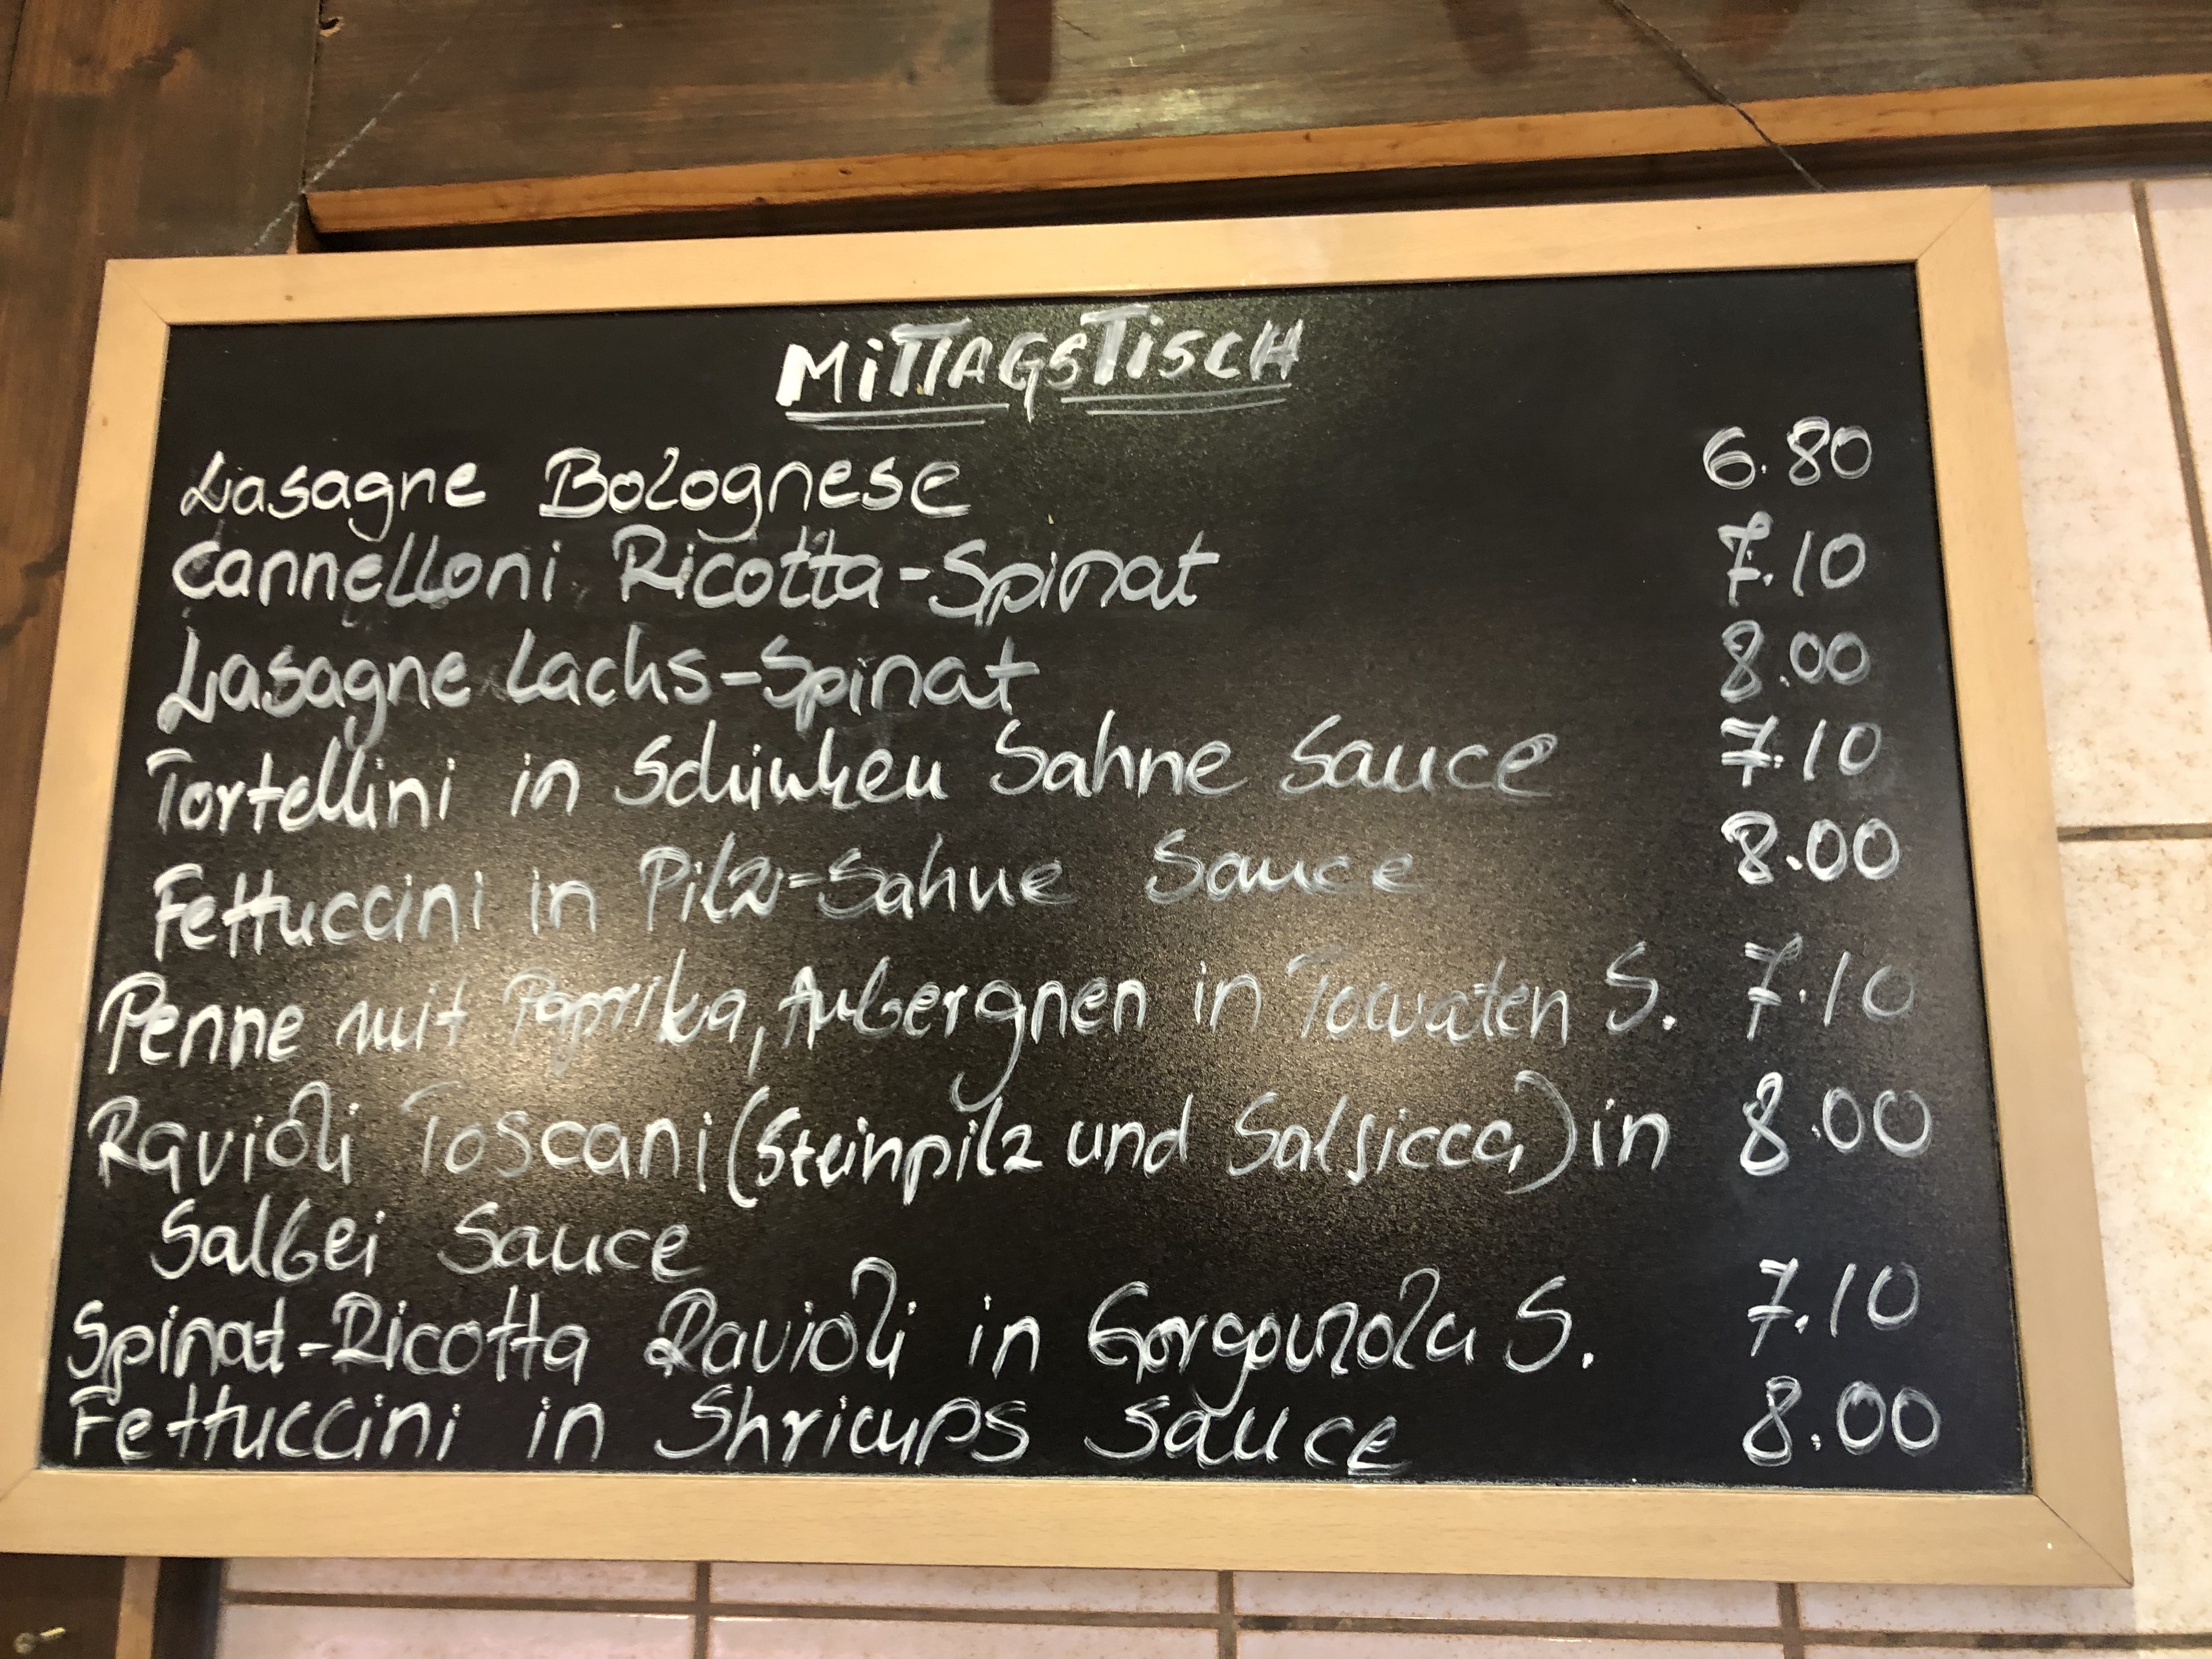 MiTTAGSTiSCH
Lasagne Bolognese 6.80
Cannelloni Ricotta-Spinat 7.10
Lasagne Lachs-Spinat 8.00
Tortellini in Schinken Sahne Sauce 7.10
Fettuccini in Pilz=Sahne Sauce 8.00
Penne mit Paprika, Aubergnen in Tomaten S. 7.10
Ravioli Toscani (Steinpilz und Salsicca) in 8.00
Salbei Sauce
Spinat-Ricotta Ravioli in Gorgonzola S. 7.10
Fettuccini in Shrimps Sauce 8.00